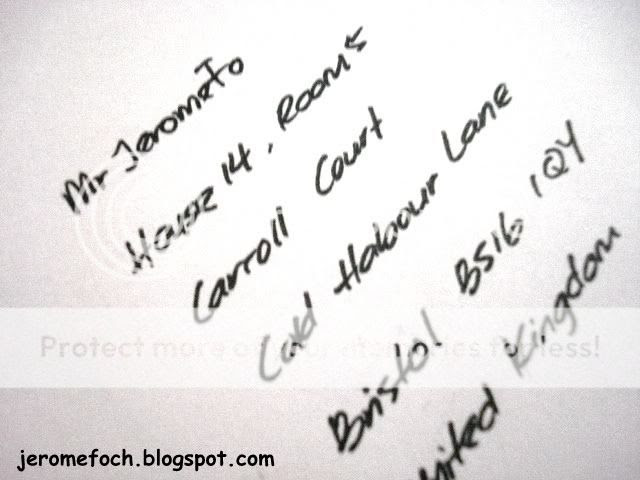 Mr JeromeTo
House 14, Room 5
Carroll Court
Cold Habour Lane
Bristol BS16 1QY
United Kingdom
Protect more of your memories for less!
jeromefoch.blogspot.com